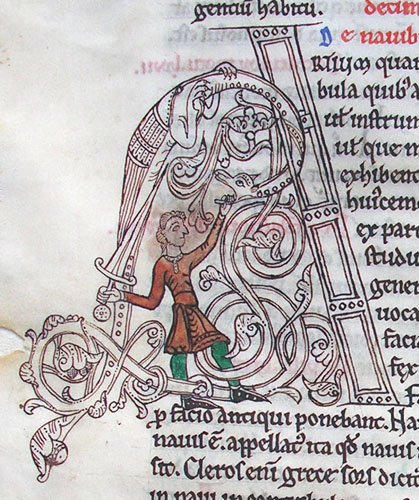 gentiū habitu. decim
De nauib
RTIUM quar
bula quib' a
ul' instrum
ul' que m
exhibenc
hui'cemo
ex parte
studu
gener
uoca
facia
fex
p facio antiqui ponebant. Ha
nauis ē. appellat' ita qđ nauis
sto. Cleros enī grece sors dicit
in naui in